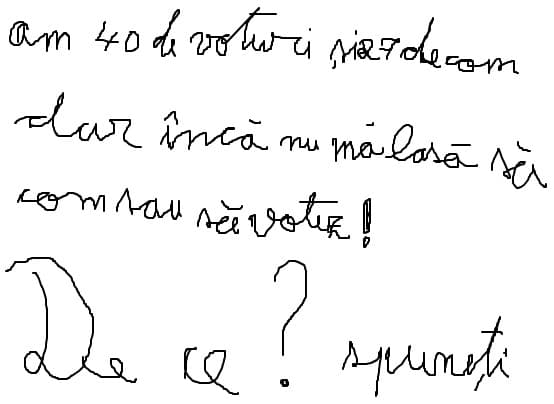 am 40 de voturi și 27 de com
dar încă nu mă lasă să
com sau să votez!
De ce? spuneți